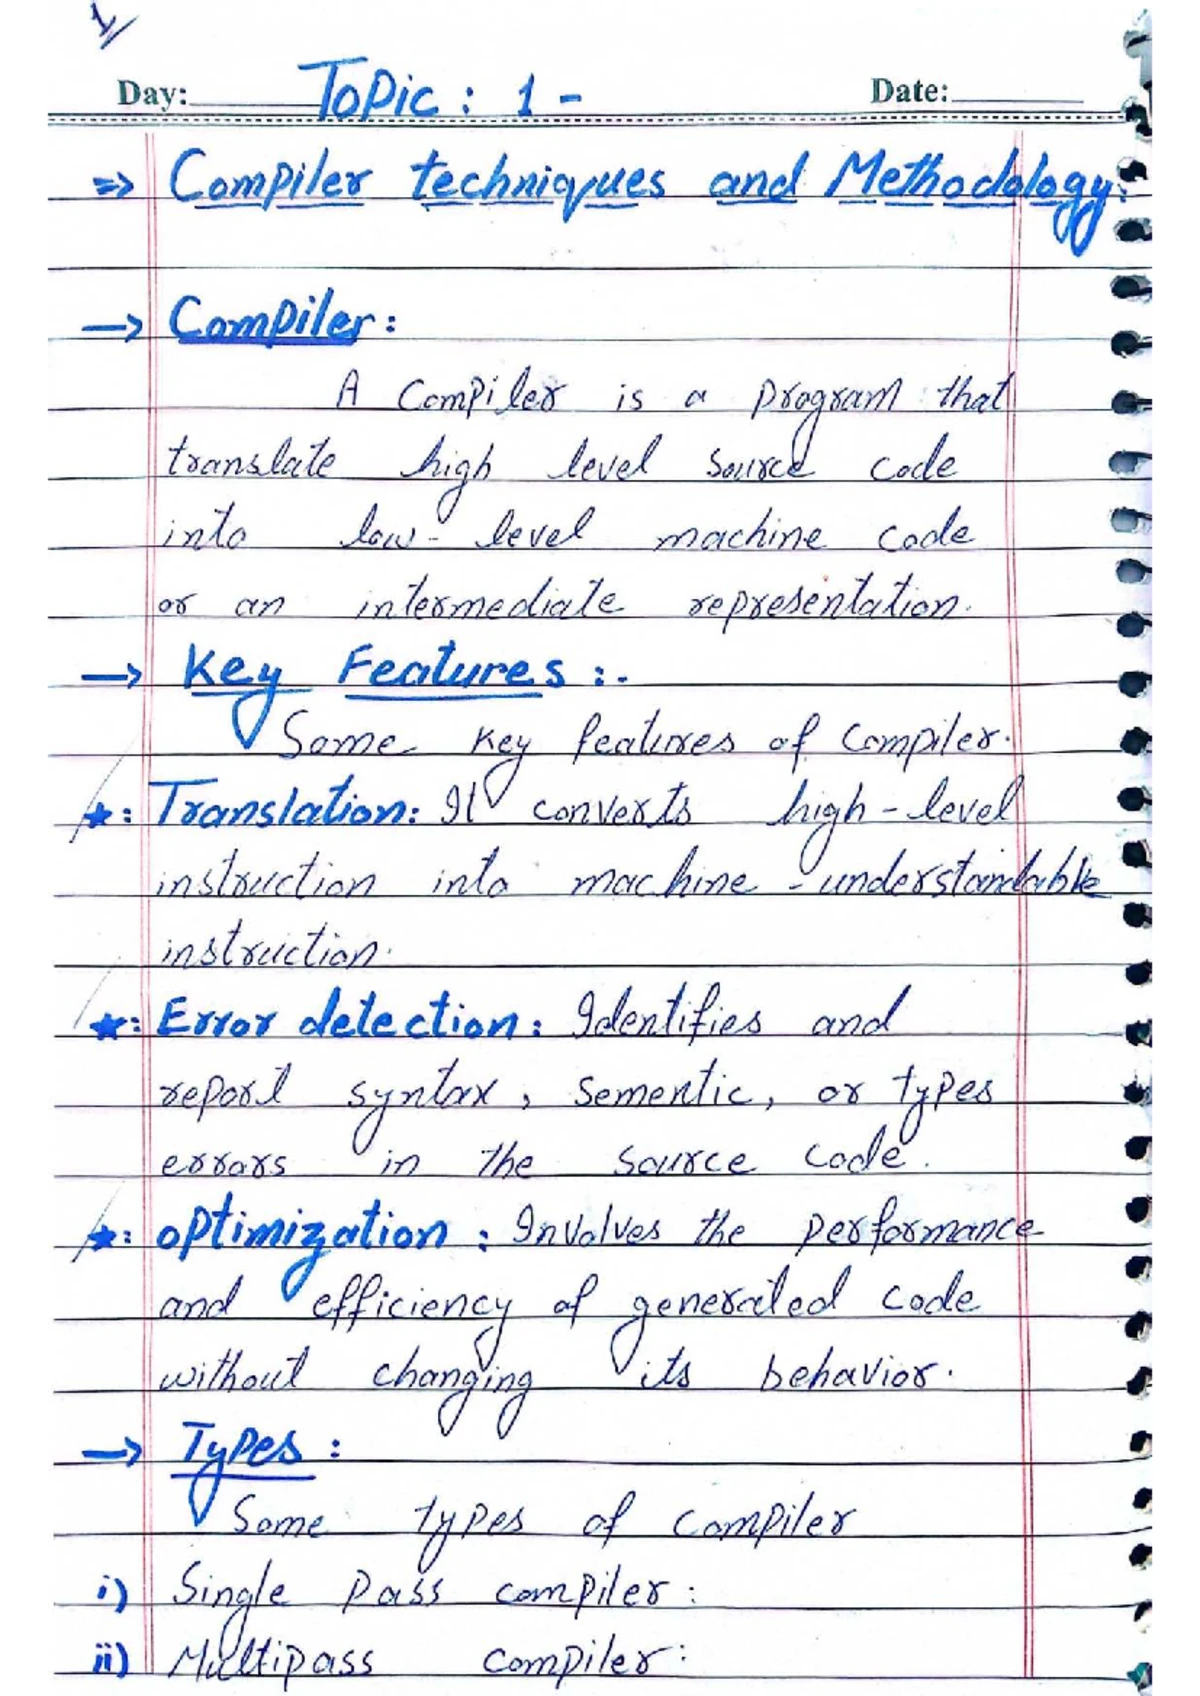 1/
Day: Topic : 1 - Date:
=> Compiler techniques and Methodology:
-> Compiler:
A Compiler is a program that
translate high level source code
into low-level machine code
or an intermediate representation.
-> Key Features :-
Some key features of compiler.
★: Translation: It converts high-level
instruction into machine-understandable
instruction.
★: Error detection: Identifies and
report syntax, sementic, or types
errors in the source code.
★: optimization : Involves the performance
and efficiency of generated code
without changing its behavior.
-> Types :
Some types of compiler
i) Single Pass compiler:
ii) Multipass compiler: